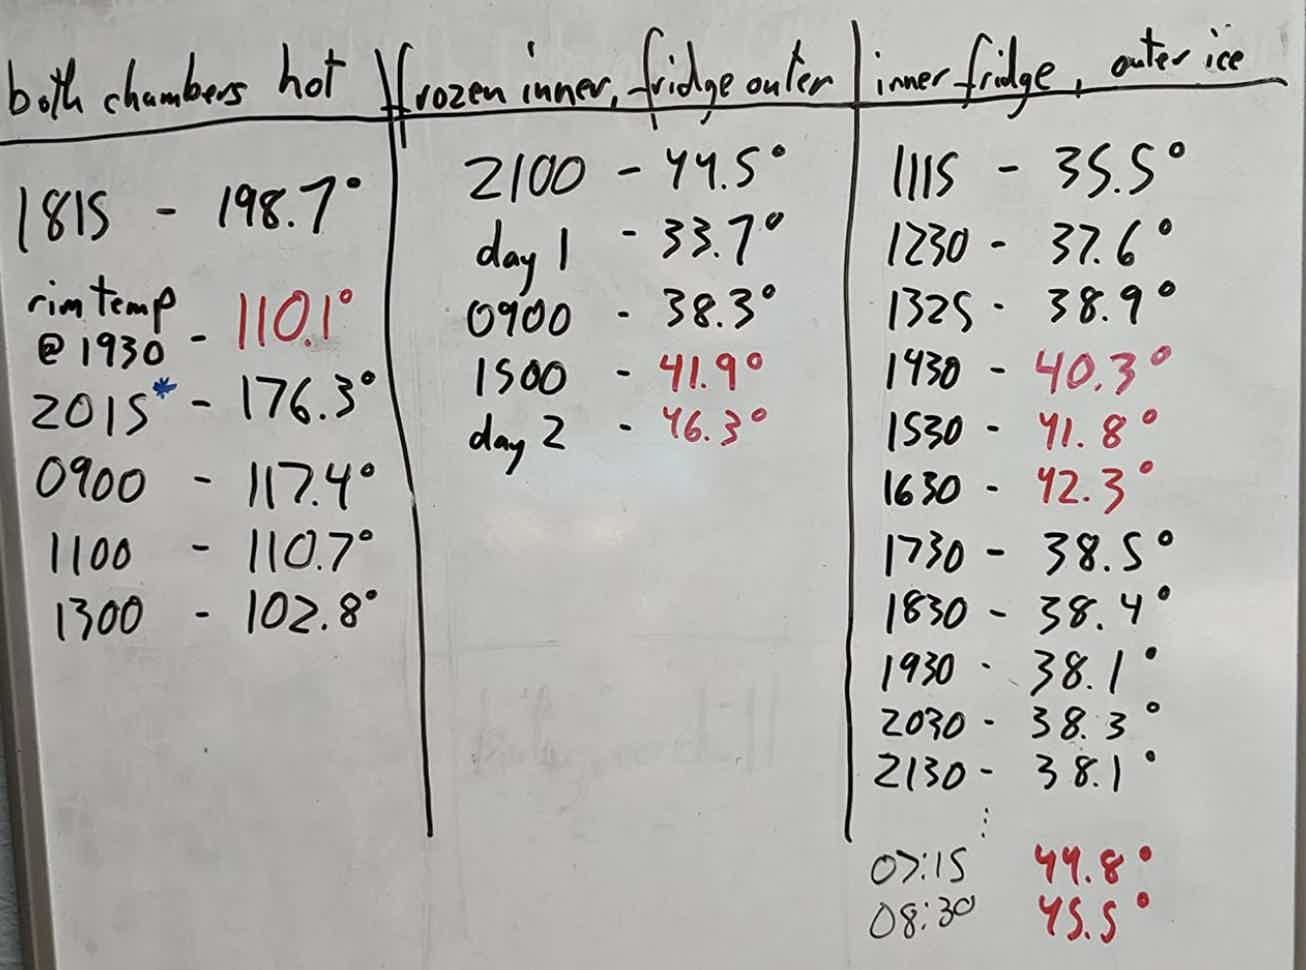 both chambers hot
1815 - 198.7°
rim temp
@ 1930 - 110.1°
2015* - 176.3°
0900 - 117.4°
1100 - 110.7°
1300 - 102.8°
frozen inner, fridge outer
2100 - 44.5°
day 1 - 33.7°
0900 - 38.3°
1500 - 41.9°
day 2 - 46.3°
inner fridge, outer ice
1115 - 35.5°
1230 - 37.6°
1325 - 38.9°
1430 - 40.3°
1530 - 41.8°
1630 - 42.3°
1730 - 38.5°
1830 - 38.4°
1930 - 38.1°
2030 - 38.3°
2130 - 38.1°
⋮
07:15 44.8°
08:30 45.5°